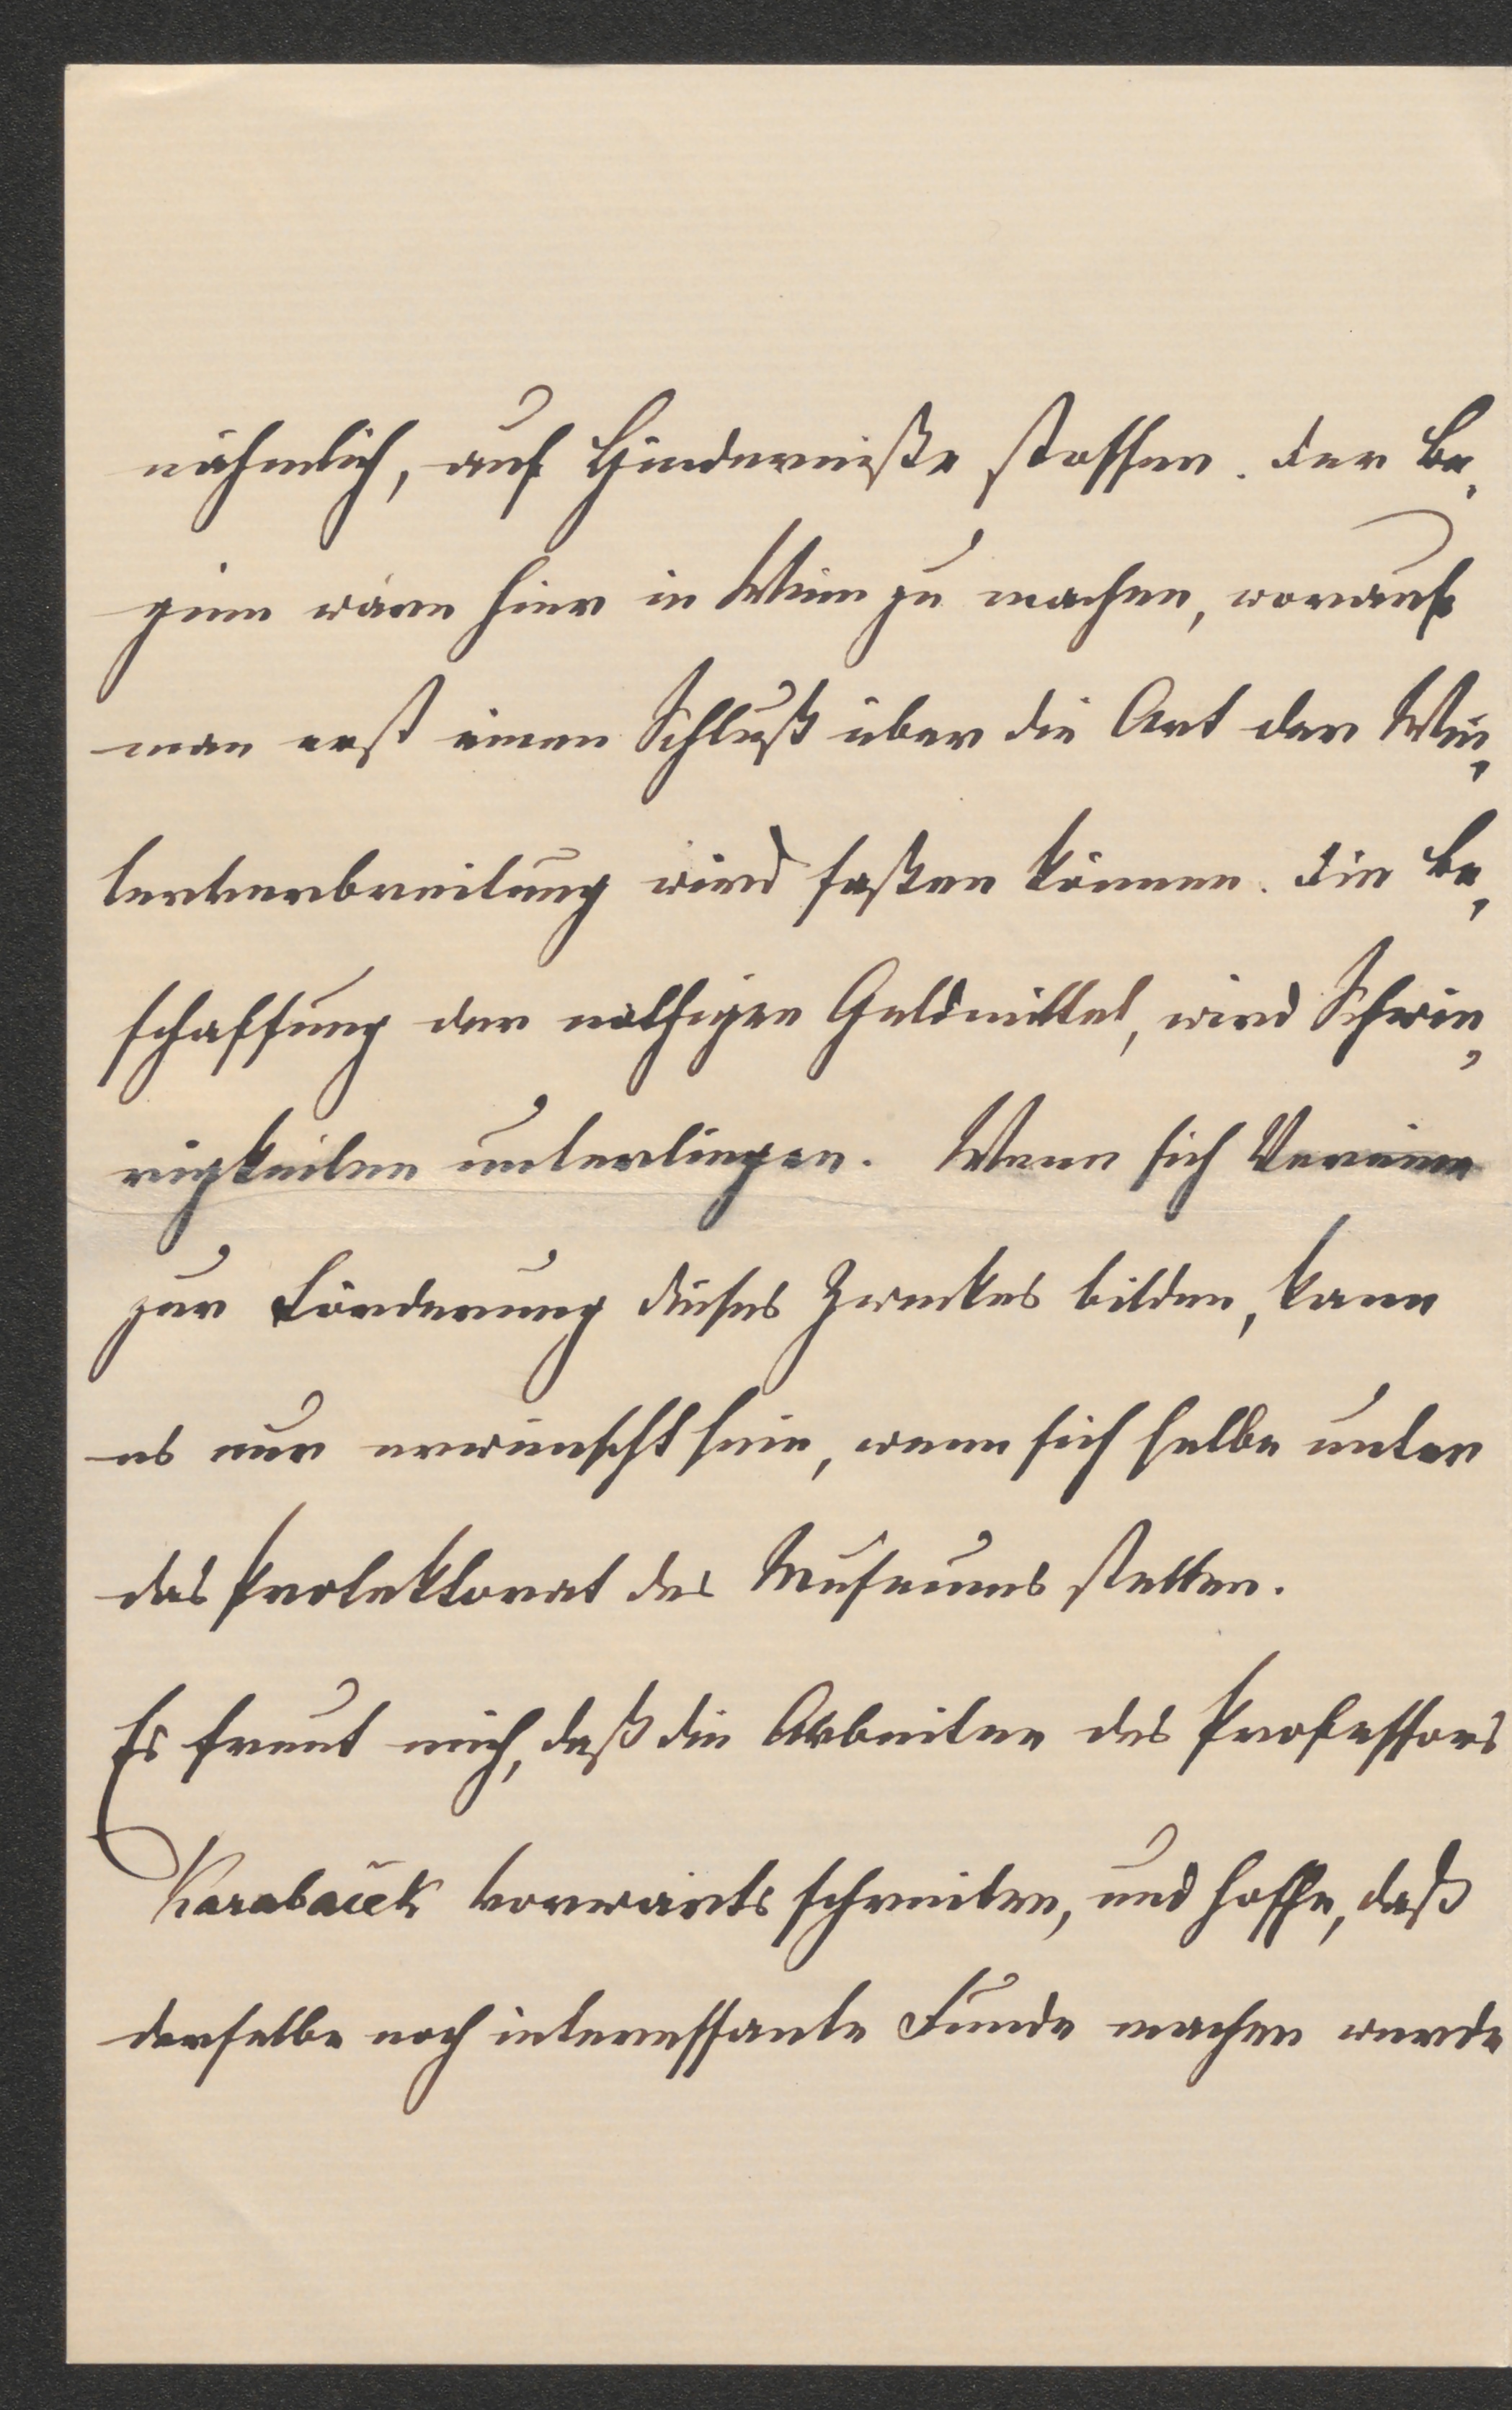 nähmlich, auf Hinderniße stossen. Der Be,
ginn wäre hier in Wien zu machen, worauf
man erst einen Schluß über die Art der Wei,
terverbreitung wird faßen können. Die Be,
schaffung der nöthigen Geldmittel, wird Schwie,
rigkeiten unterliegen. Wenn sich Vereine
zur Förderung dieses Zweckes bilden, kann
es nur erwünscht sein, wenn sich selbe unter
das Protektorat des Museums stellen.
Es freut mich, daß die Arbeiten des Professors
Karabaček vorwärts schreiten, und hoffe, daß
derselbe noch interessante Funde machen werde